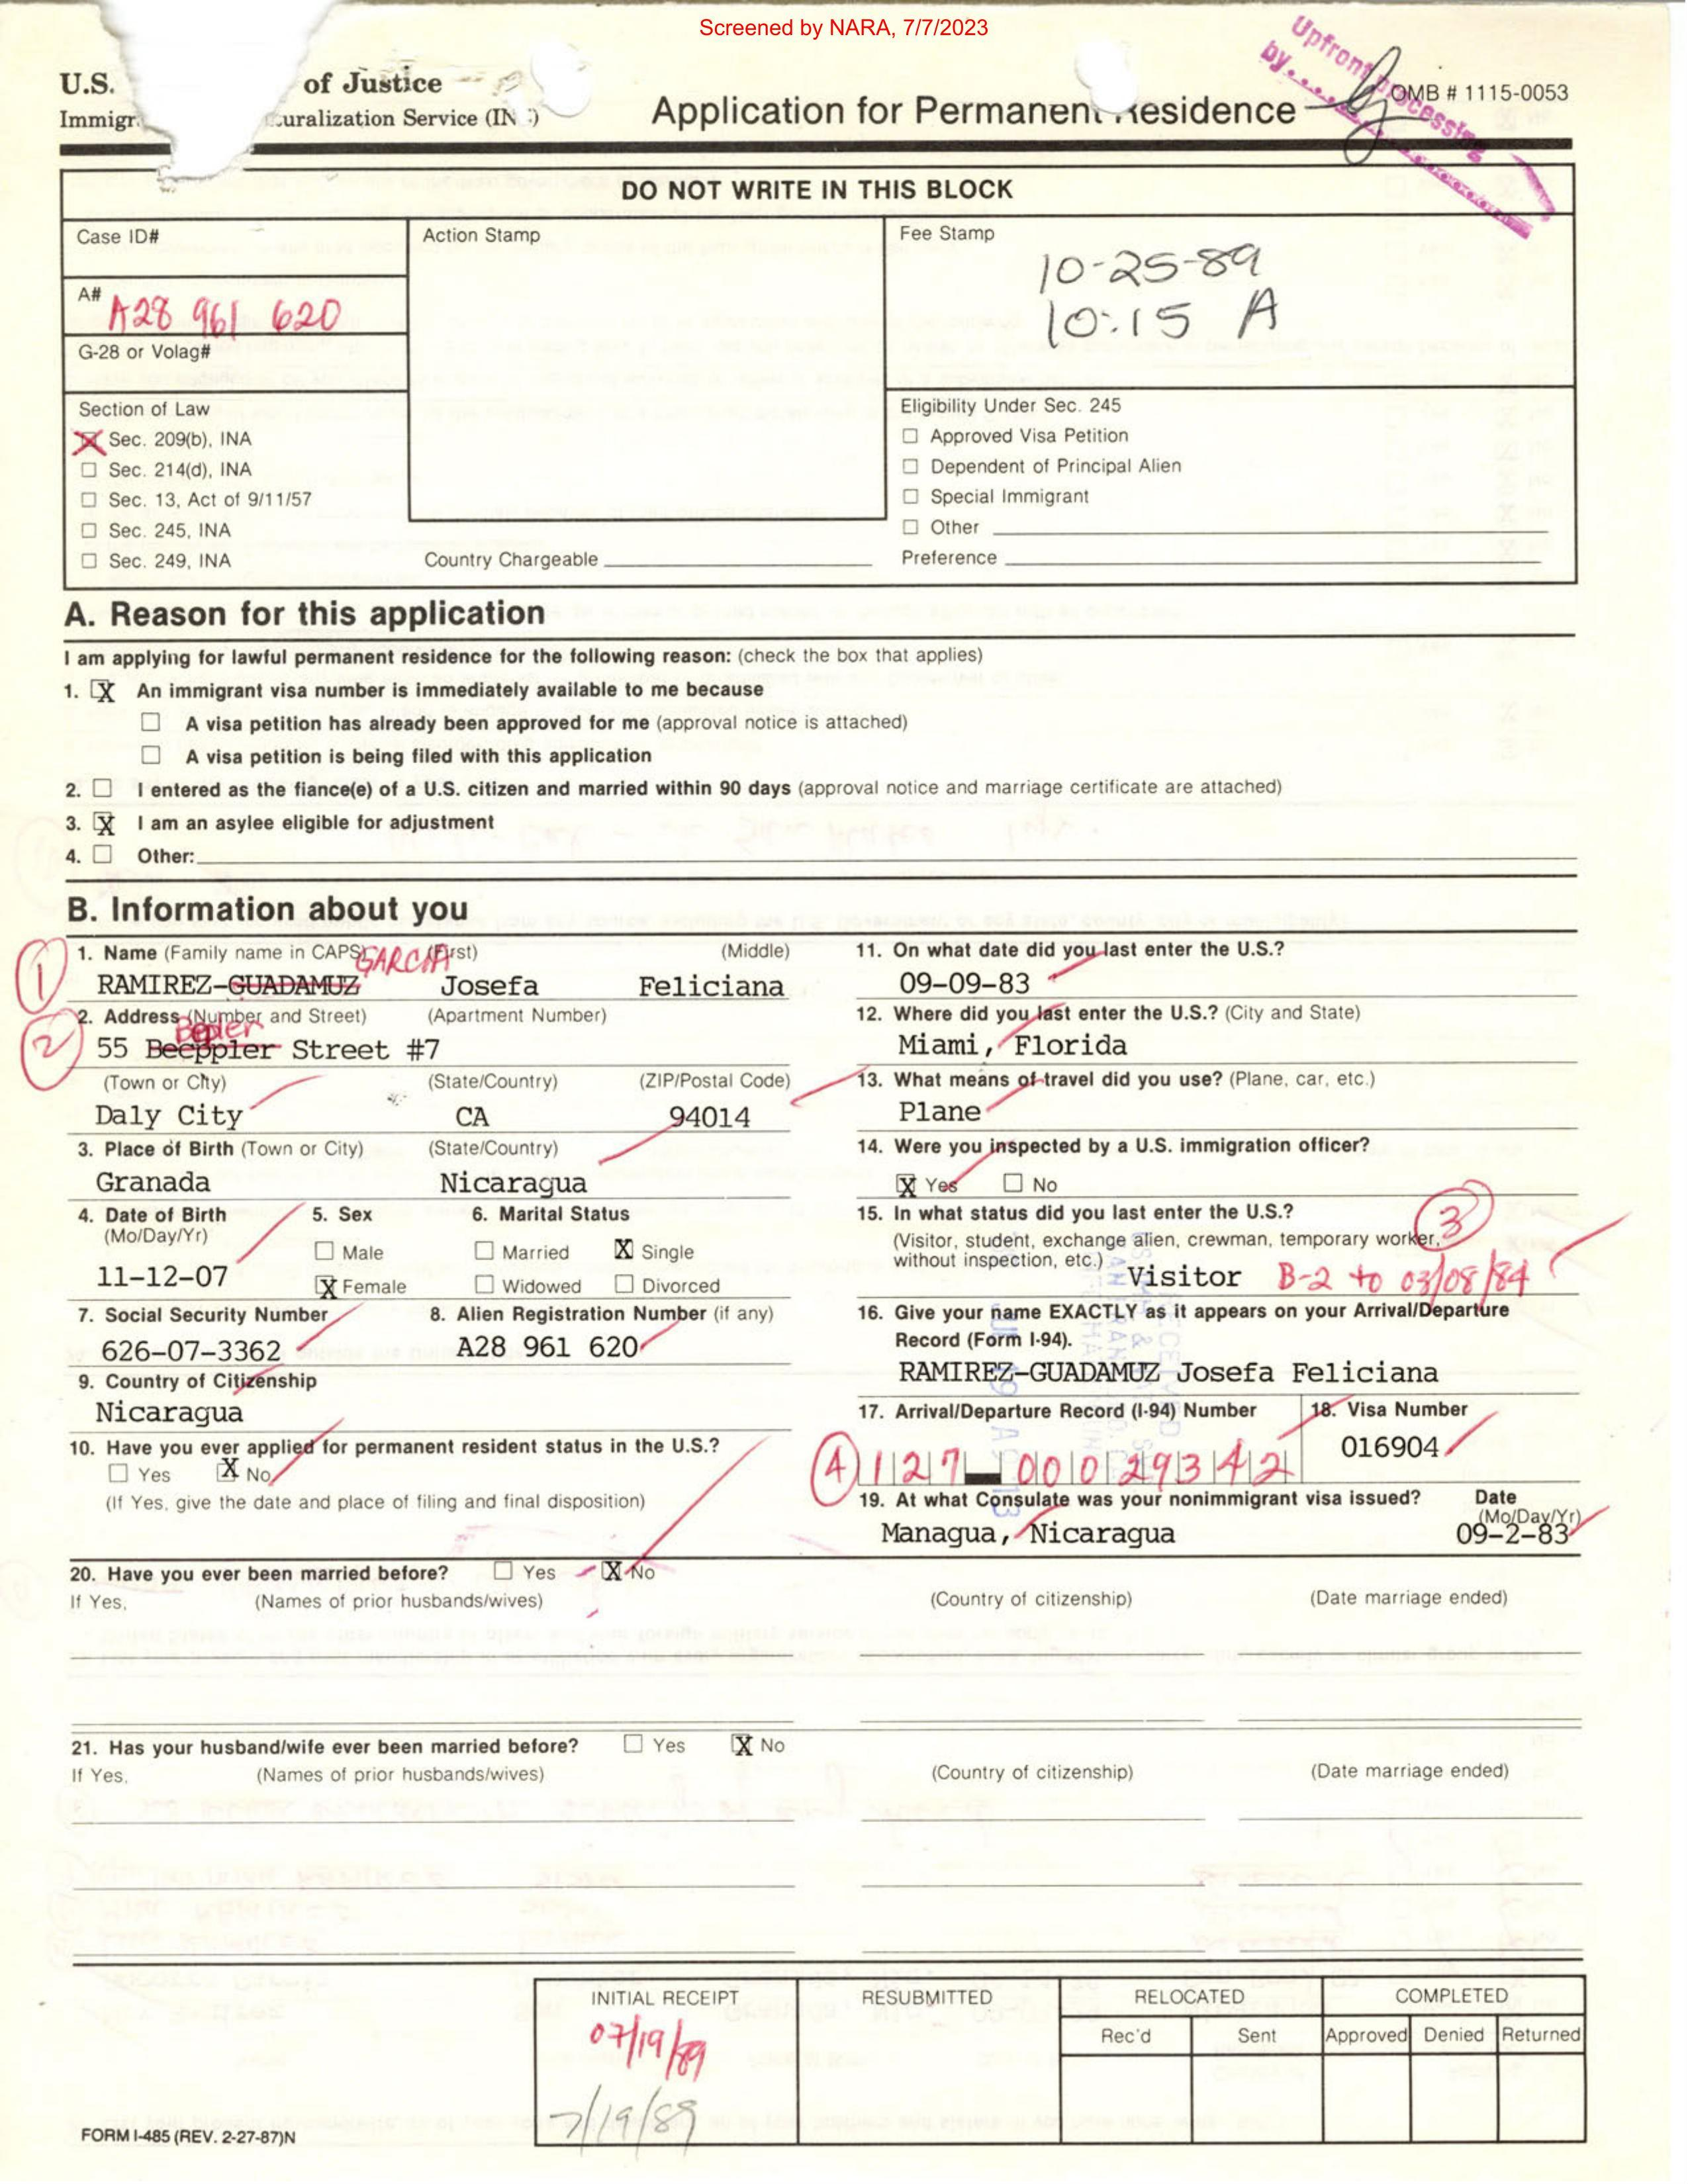 Screened by NARA, 7/7/2023
Upfront processing
by
U.S. of Justice
OMB # 1115-0053
Immigr uralization Service (IN )
Application for Permanent Residence
DO NOT WRITE IN THIS BLOCK
Case ID#
Action Stamp
Fee Stamp
10-25-89
10:15 A
A#
A28 961 620
G-28 or Volag#
Section of Law
☒ Sec. 209(b), INA
☐ Sec. 214(d), INA
☐ Sec. 13, Act of 9/11/57
☐ Sec. 245, INA
☐ Sec. 249, INA
Country Chargeable
Eligibility Under Sec. 245
☐ Approved Visa Petition
☐ Dependent of Principal Alien
☐ Special Immigrant
☐ Other
Preference
A. Reason for this application
I am applying for lawful permanent residence for the following reason: (check the box that applies)
1. ☒ An immigrant visa number is immediately available to me because
☐ A visa petition has already been approved for me (approval notice is attached)
☐ A visa petition is being filed with this application
2. ☐ I entered as the fiance(e) of a U.S. citizen and married within 90 days (approval notice and marriage certificate are attached)
3. ☒ I am an asylee eligible for adjustment
4. ☐ Other:
B. Information about you
1
1. Name (Family name in CAPS) (First) (Middle)
GARCIA
RAMIREZ-GUADAMUZ Josefa Feliciana
2
2. Address (Number and Street) (Apartment Number)
55 Beeppler Street #7
(Town or City) (State/Country) (ZIP/Postal Code)
Daly City CA 94014
3. Place of Birth (Town or City) (State/Country)
Granada Nicaragua
4. Date of Birth
(Mo/Day/Yr)
11-12-07
5. Sex
☐ Male
☒ Female
6. Marital Status
☐ Married ☒ Single
☐ Widowed ☐ Divorced
7. Social Security Number
626-07-3362
8. Alien Registration Number (if any)
A28 961 620
9. Country of Citizenship
Nicaragua
10. Have you ever applied for permanent resident status in the U.S.?
☐ Yes ☒ No
(If Yes, give the date and place of filing and final disposition)
11. On what date did you last enter the U.S.?
09-09-83
12. Where did you last enter the U.S.? (City and State)
Miami, Florida
13. What means of travel did you use? (Plane, car, etc.)
Plane
14. Were you inspected by a U.S. immigration officer?
☒ Yes ☐ No
15. In what status did you last enter the U.S.?
3
(Visitor, student, exchange alien, crewman, temporary worker,
without inspection, etc.) Visitor B-2 to 03/08/84
16. Give your name EXACTLY as it appears on your Arrival/Departure
Record (Form I-94).
RAMIREZ-GUADAMUZ Josefa Feliciana
17. Arrival/Departure Record (I-94) Number
4
127-00029342
18. Visa Number
016904
19. At what Consulate was your nonimmigrant visa issued? Date
(Mo/Day/Yr)
Managua, Nicaragua 09-2-83
20. Have you ever been married before? ☐ Yes ☒ No
If Yes, (Names of prior husbands/wives) (Country of citizenship) (Date marriage ended)
21. Has your husband/wife ever been married before? ☐ Yes ☒ No
If Yes, (Names of prior husbands/wives) (Country of citizenship) (Date marriage ended)
INITIAL RECEIPT RESUBMITTED RELOCATED COMPLETED
Rec'd Sent Approved Denied Returned
07/19/89
7/19/89
FORM I-485 (REV. 2-27-87)N